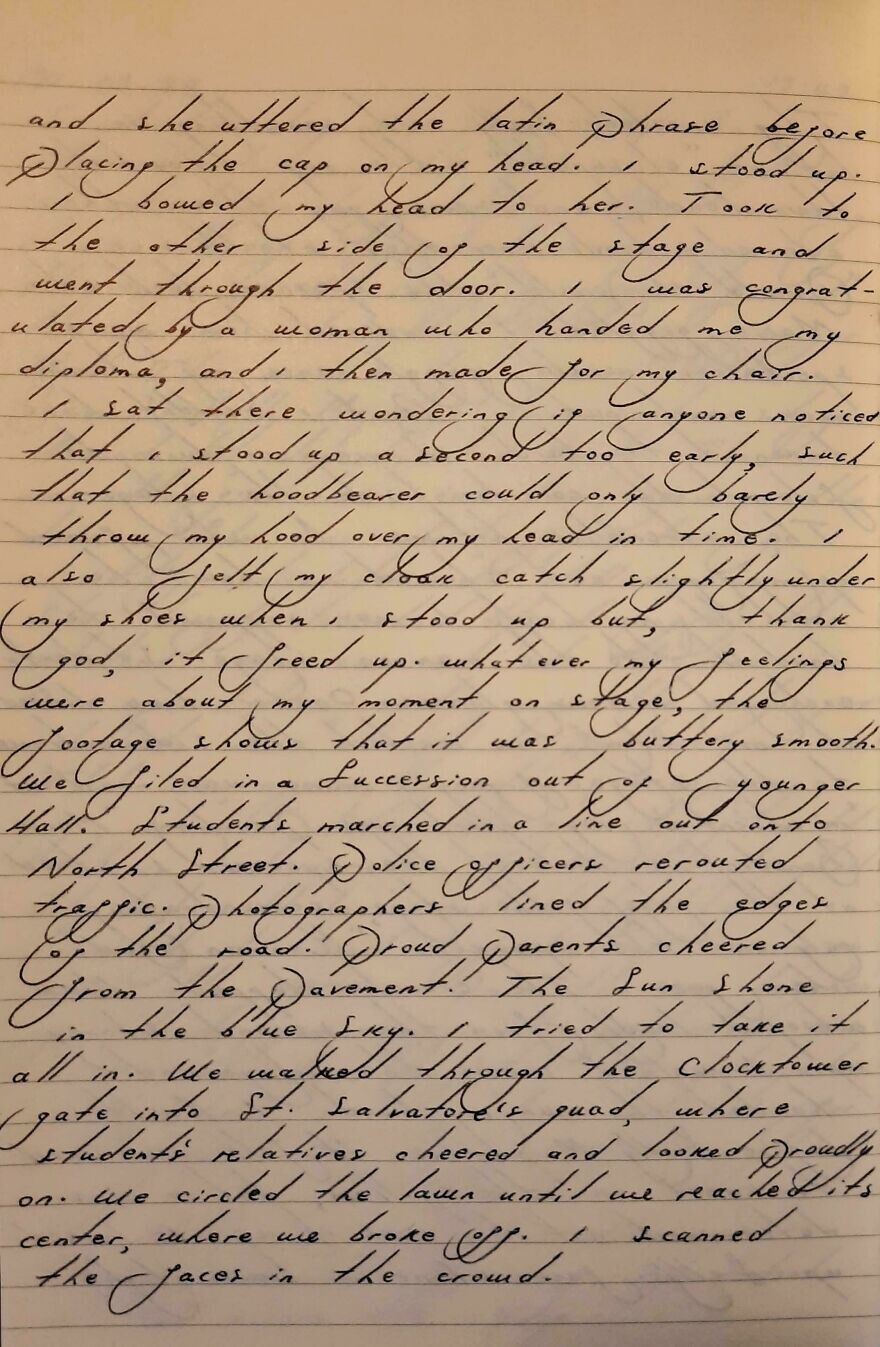 and she uttered the latin Phrase before
Placing the cap on my head. I stood up.
I bowed my head to her. Took to
the other side of the stage and
went through the door. I was congrat-
ulated by a woman who handed me my
diploma, and i then made for my chair.
I sat there wondering if anyone noticed
that i stood up a second too early, such
that the hoodbearer could only barely
throw my hood over my head in time. I
also felt my cloak catch slightly under
my shoes when i stood up but, thank
god, it freed up. whatever my feelings
were about my moment on stage, the
footage shows that it was buttery smooth.
We filed in a Succession out of younger
Hall. Students marched in a line out onto
North Street. Police officers rerouted
traffic. Photographers lined the edges
of the road. Proud Parents cheered
from the Pavement. The Sun Shone
in the blue Sky. I tried to take it
all in. We walked through the Clocktower
gate into St. Salvatore's quad, where
student's relatives cheered and looked Proudly
on. We circled the lawn until we reached its
center, where we broke off. I scanned
the faces in the crowd.